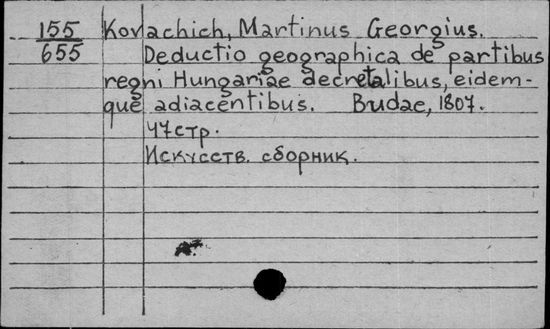 155 Kovachich, Martinus Georgius.
655 Deductio geographica de partibus
regni Hungariae decretalibus, eidem-
que adiacentibus. Budae, 1807.
47стр.
Искусств. сборник.